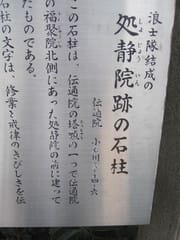 浪士隊結成の
処静院跡の石柱
しょじょういん
伝通院 小石川三-一四-六
この石柱は、伝通院の塔頭の一つで伝通院
の福聚院北側にあった処静院の前に建って
たものである。
石柱の文字は、修業と戒律のきびしさを伝